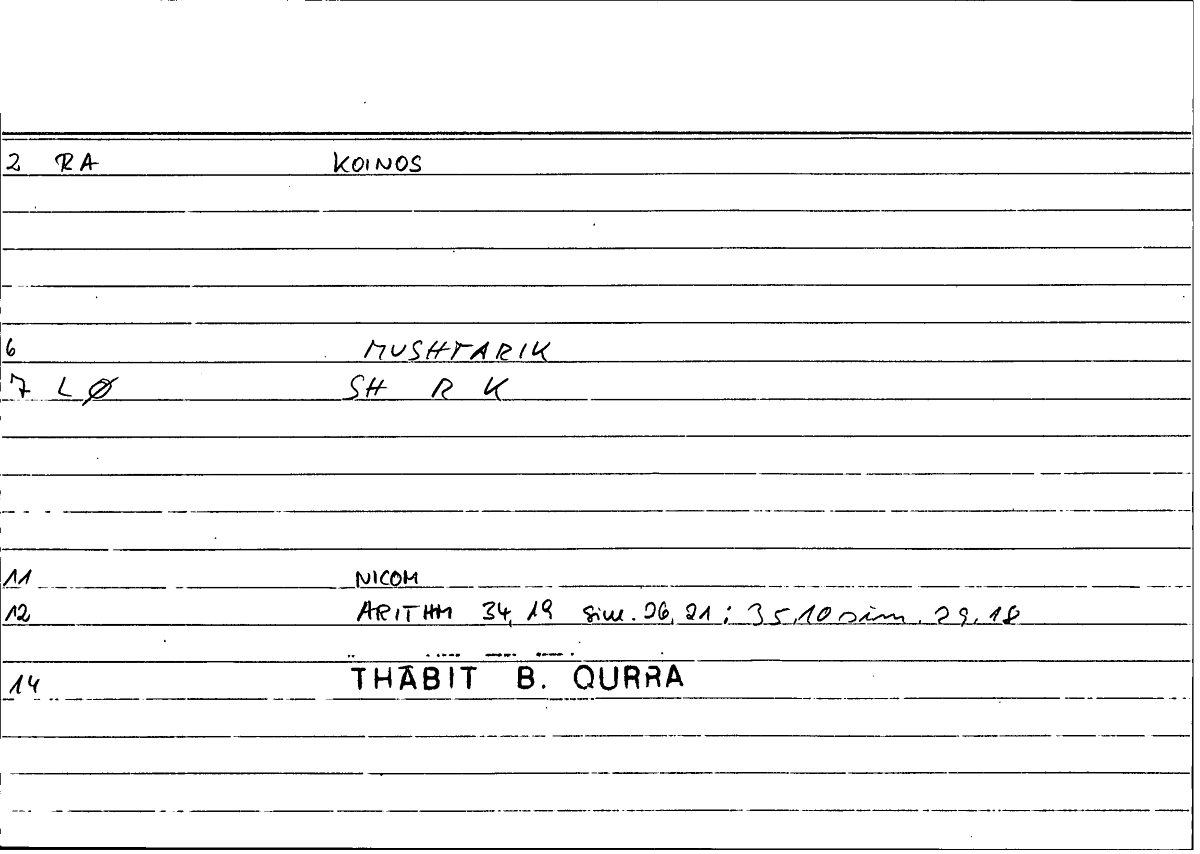 2 RA KOINOS
6 MUSHTARIK
7 L Ø SH R K
11 NICOM
12 ARITHM 34, 19 sim. 26, 21; 35, 10 sim. 29, 18
14 THĀBIT B. QURRA